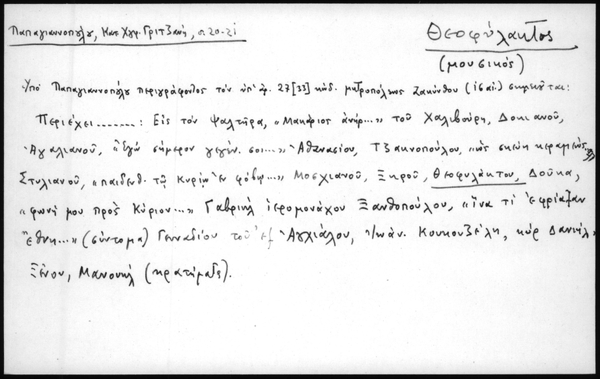 Παπαγιαννοπούλου, Κατ. Χφ. Γριτζάνη, σ. 20-21
Θεοφύλακτος
(μουσικός)
Ὑπὸ Παπαγιαννοπούλου περιγράφοντος τὸν ὑπ' ἀρ. 27[33] κώδ. μητροπόλεως Ζακύνθου (ιϛ αἰ.) σημειοῦται:
Περιέχει.......: Εἰς τὸν Ψαλτῆρα, "Μακάριος ἀνήρ..." τοῦ Χαλιβούρη, Δοκιανοῦ,
Ἀγαλιανοῦ, "ἐγὼ σήμερον γεγέν. σοι..." Ἀθανασίου, Τζακνοπούλου, "ὡς σκεύη κεραμέως"
Στυλιανοῦ, "παιδευθ. τῷ Κυρίῳ ἐν φόβῳ..." Μοσχιανοῦ, Ξηροῦ, Θεοφυλάκτου, Δούκα,
"φωνῇ μου πρὸς Κύριον..." Γαβριὴλ ἱερομονάχου Ξανθοπούλου, "ἵνα τί ἐφρύαξαν
ἔθνη..." (σύντομα) Γενναδίου τοῦ ἐξ Ἀγχιάλου, Ἰωάν. Κουκουζέλη, κὺρ Δανιὴλ
Ξένου, Μανουὴλ (κρατήματα).